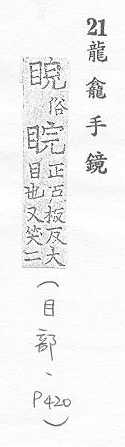 21 龍龕手鏡
俗睆正戶板反大目也又笑二
（目部、P420）